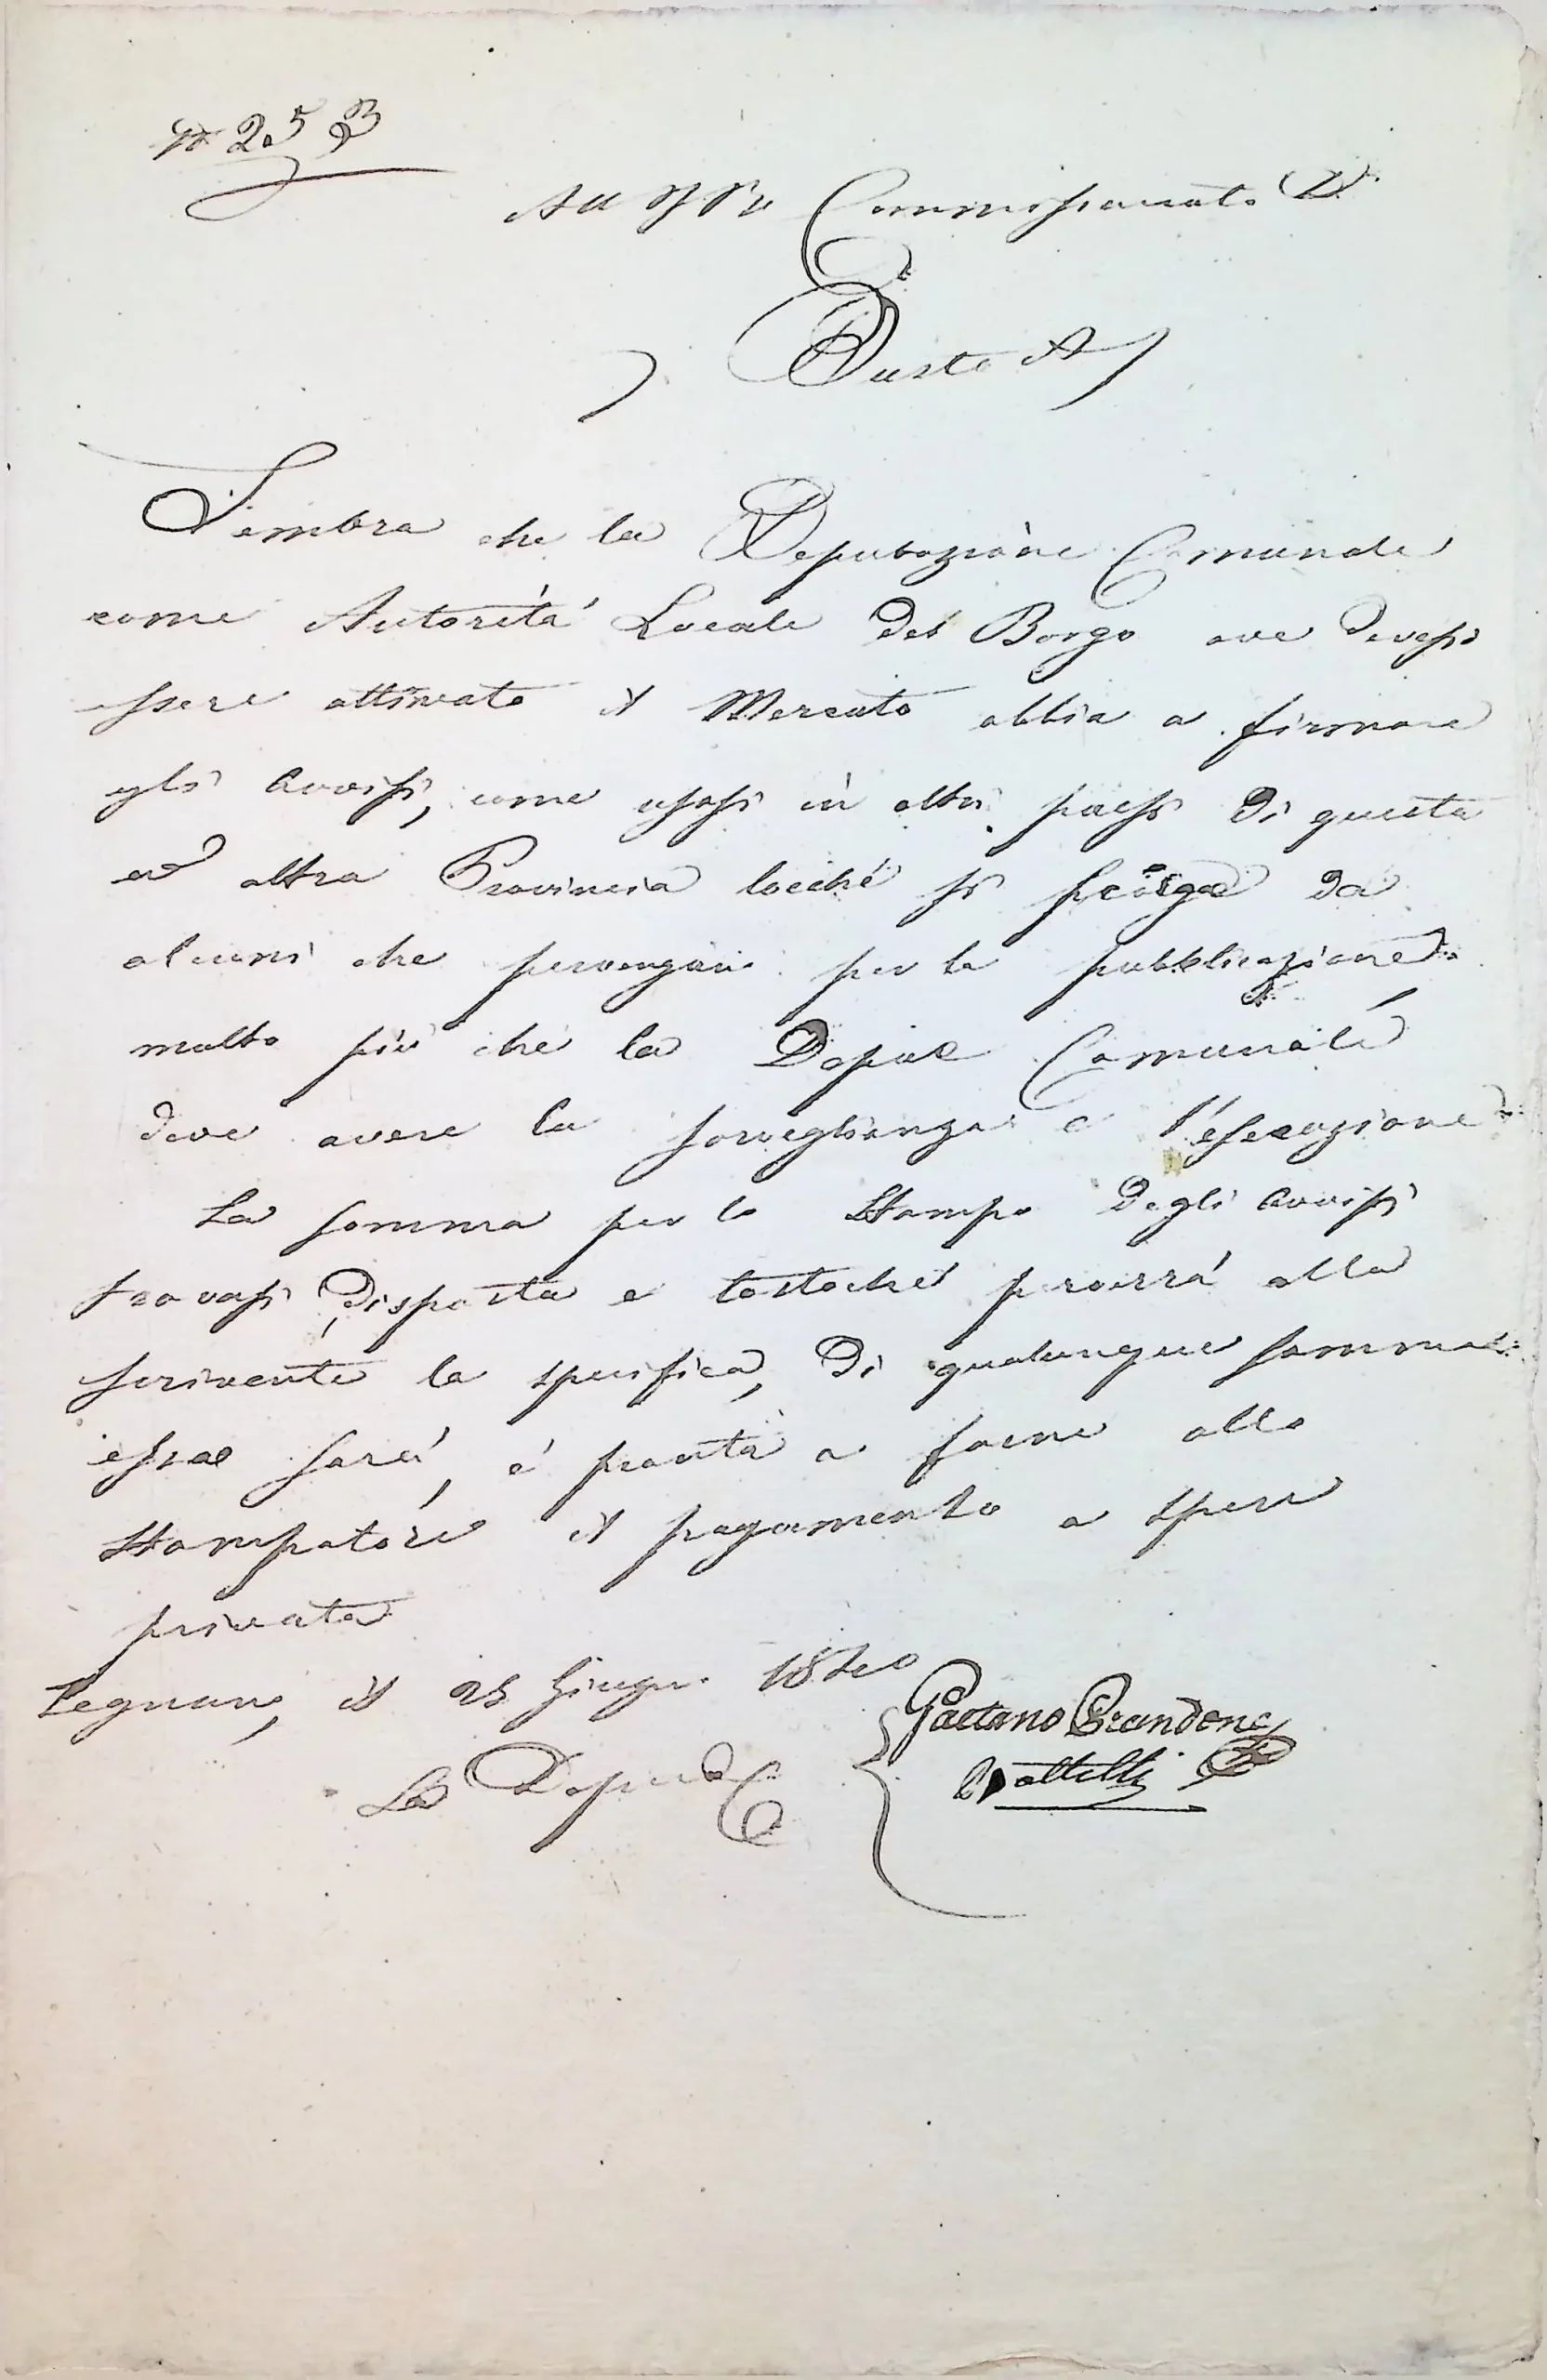 N 253
All' I. R. Commissariato D.
Busto A
Sembra che la Deputazione Comunale
come Autorità Locale del Borgo ove devesi
essere attivato il Mercato abbia a firmare
gli avvisi, come usasi in altri paesi di questa
ed altra Provincia locché si scorge da
alcuni che pervengono per la pubblicazione
molto più che la Deputa Comunale
deve avere la sorveglianza e l'esecuzione
La somma per la Stampa degli avvisi
trovasi disposta e tostoché perverrà alla
scrivente la specifica, di qualunque somma
essa sarà, è pronta a farne allo
Stampatore il pagamento a spese
privata
Legnano, il 25 Giugno 1820
La Deput C
Gaetano Brandone